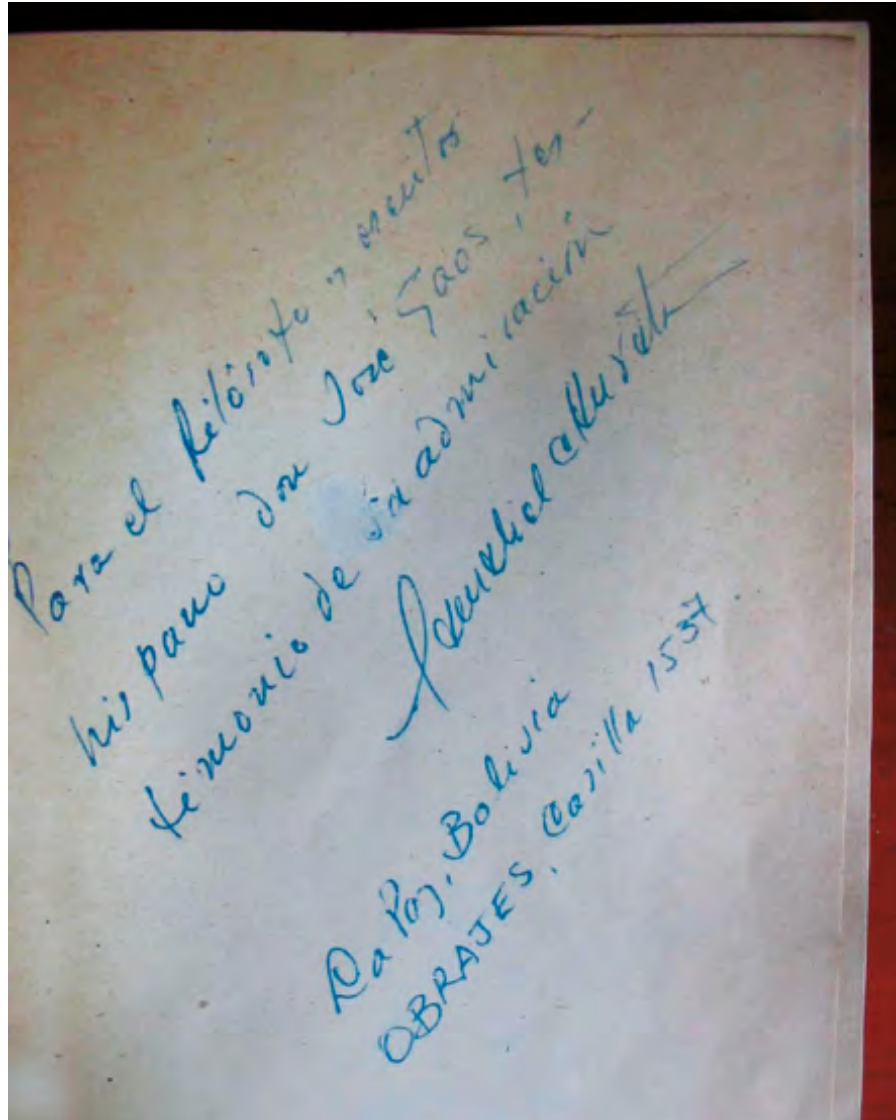 Para el filósofo y escritor
hispano don José Gaos, tes-
timonio de admiración
La Paz, Bolivia
OBRAJES, Casilla 1537.